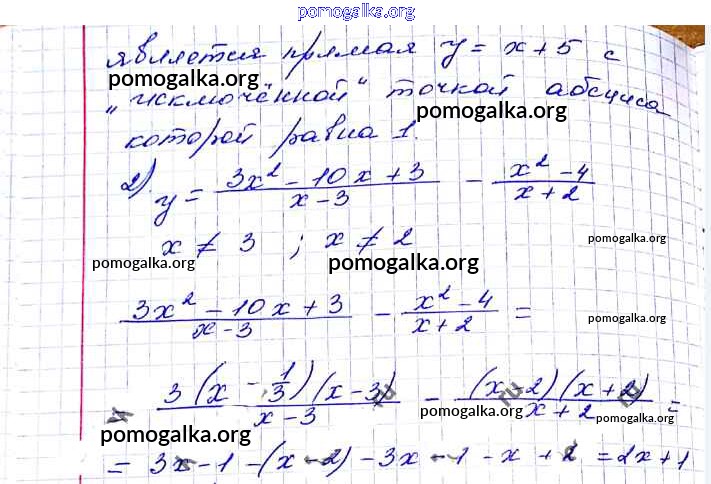 pomogalka.org
является прямая y = x + 5 с
pomogalka.org
"исключённой" точкой абсцисса
pomogalka.org
которой равна 1.
2) y = \frac{3x² - 10x + 3}{x - 3} - \frac{x² - 4}{x + 2}
x ≠ 3 ; x ≠ 2
pomogalka.org
pomogalka.org pomogalka.org
\frac{3x² - 10x + 3}{x - 3} - \frac{x² - 4}{x + 2} =
pomogalka.org
= \frac{3(x - \frac{1}{3})(x - 3)}{x - 3} - \frac{(x - 2)(x + 2)}{x + 2} =
pomogalka.org pomogalka.org
pomogalka.org
= 3x - 1 - (x - 2) - 3x - 1 - x + 2 = 2x + 1